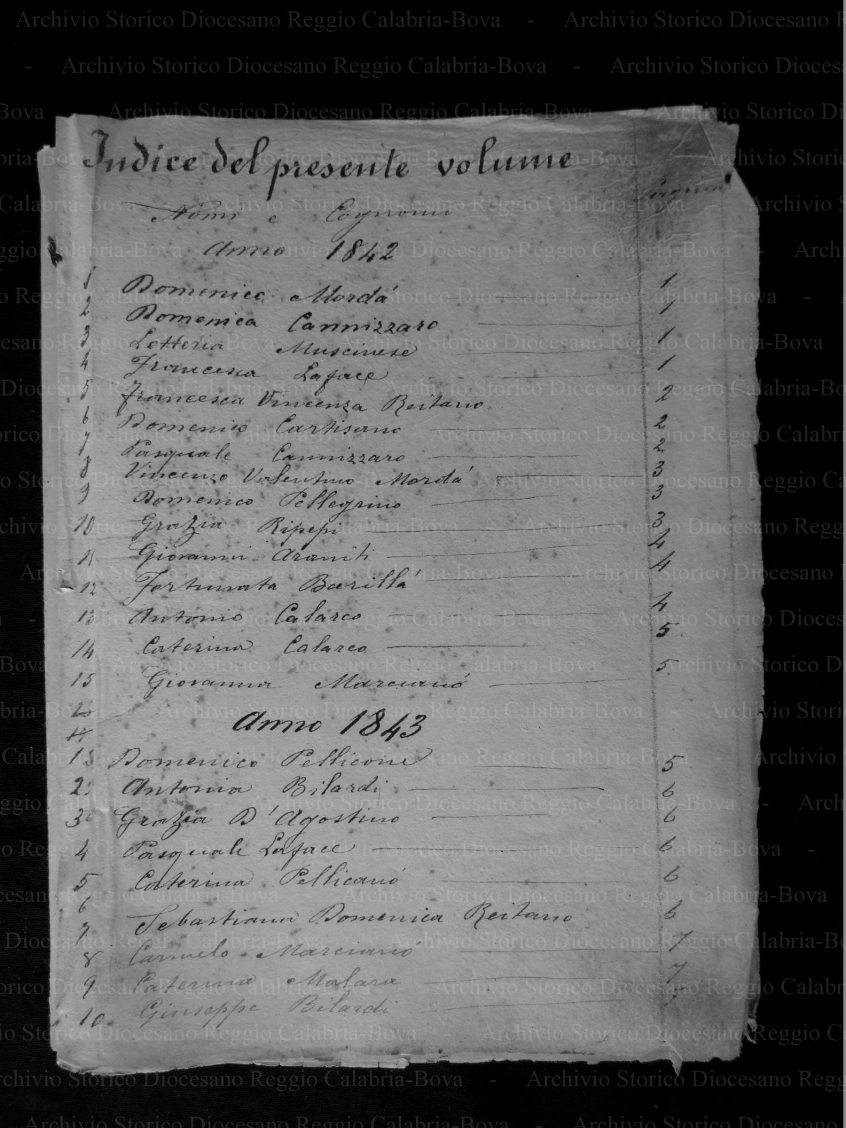 Indice del presente volume
Nomi e Cognomi
Anno 1842
1 Domenico Mordá 1
2 Domenica Cannizzaro 1
3 Letteria Muscinese 1
4 Francesca Laface 1
5 Francesca Vincenza Reitano 2
6 Domenico Cartisano 2
7 Pasquale Cannizzaro 2
8 Vincenzo Valentino Mordá 3
9 Domenico Pellegrino 3
10 Grazia Ripepi 3
11 Giovanni Araniti 4
12 Fortunata Barillá 4
13 Antonio Calarco 4
14 Caterina Calarco 5
15 Giovanna Marcianó 5
Anno 1843
1 Domenico Pellicone 5
2 Antonia Bilardi 6
3 Grazia D'Agostino 6
4 Pasquale Laface 6
5 Caterina Pellicanó 6
6
7 Sebastiana Domenica Reitano 6
8 Carmelo Marcianó 7
9 Caterina Malara 7
10 Giuseppe Bilardi 7
Archivio Storico Diocesano Reggio Calabria-Bova